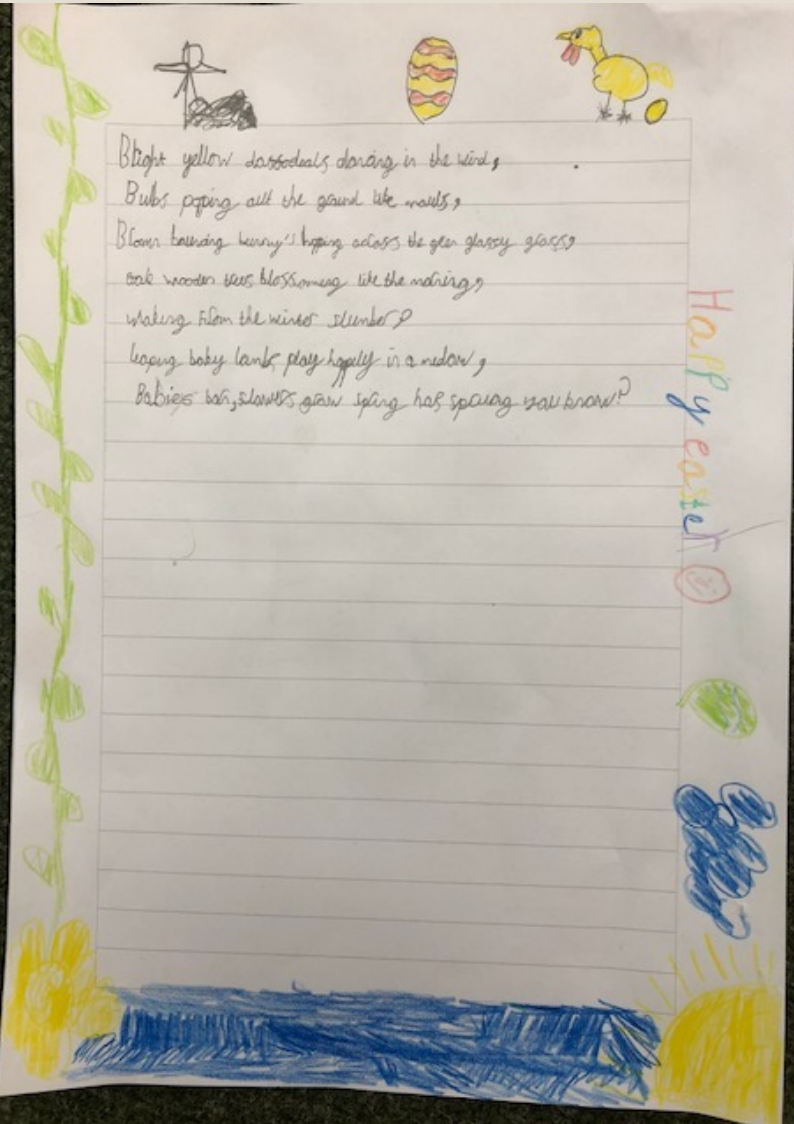 Bright yellow daffodeals dancing in the wind,
Bulbs poping out the ground like mouls,
Brown bouncing bunny's hopping across the green glassy grass,
oak wooden trees blossoming like the morning,
waking from the winter slumber,
leaping baby lambs play happely in a medow,
Babies bah, flowers grow spring has sprung you know?
Happy easter